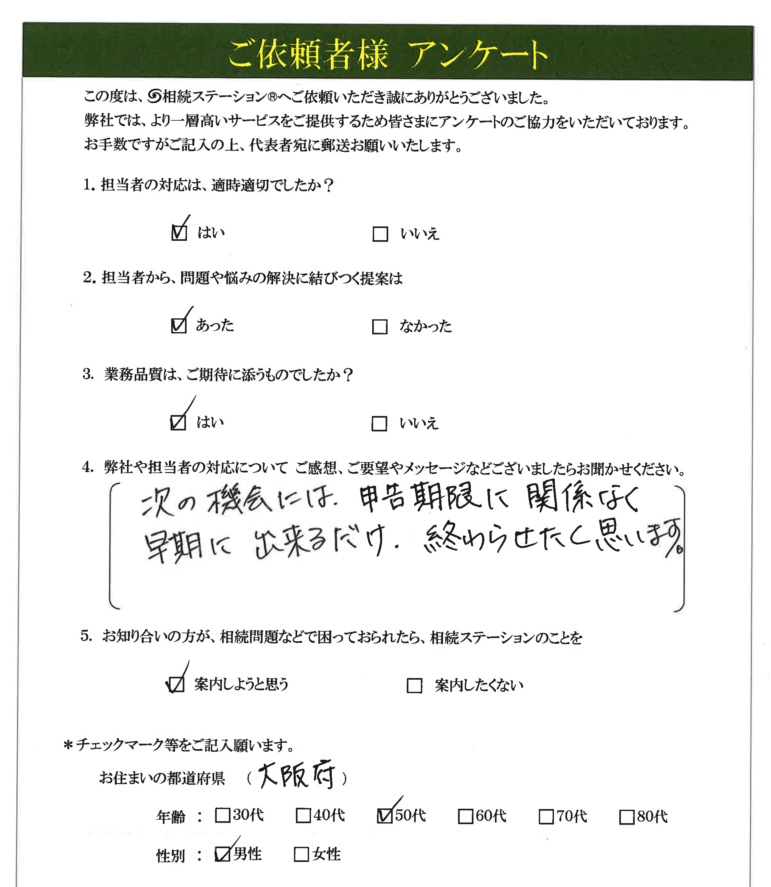 ご依頼者様 アンケート
この度は、相続ステーション®へご依頼いただき誠にありがとうございました。
弊社では、より一層高いサービスをご提供するため皆さまにアンケートのご協力をいただいております。
お手数ですがご記入の上、代表者宛に郵送お願いいたします。
1. 担当者の対応は、適時適切でしたか？
☑ はい □ いいえ
2. 担当者から、問題や悩みの解決に結びつく提案は
☑ あった □ なかった
3. 業務品質は、ご期待に添うものでしたか？
☑ はい □ いいえ
4. 弊社や担当者の対応について ご感想、ご要望やメッセージなどございましたらお聞かせください。
次の機会には、申告期限に関係なく
早期に出来るだけ、終わらせたく思います。
5. お知り合いの方が、相続問題などで困っておられたら、相続ステーションのことを
☑ 案内しようと思う □ 案内したくない
＊チェックマーク等をご記入願います。
お住まいの都道府県 （大阪府）
年齢 ： □30代 □40代 ☑50代 □60代 □70代 □80代
性別 ： ☑男性 □女性